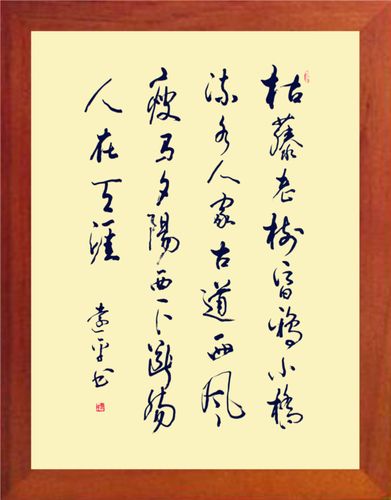 枯藤老樹昏鴉小橋
流水人家古道西風
瘦馬夕陽西下斷腸
人在天涯
平书